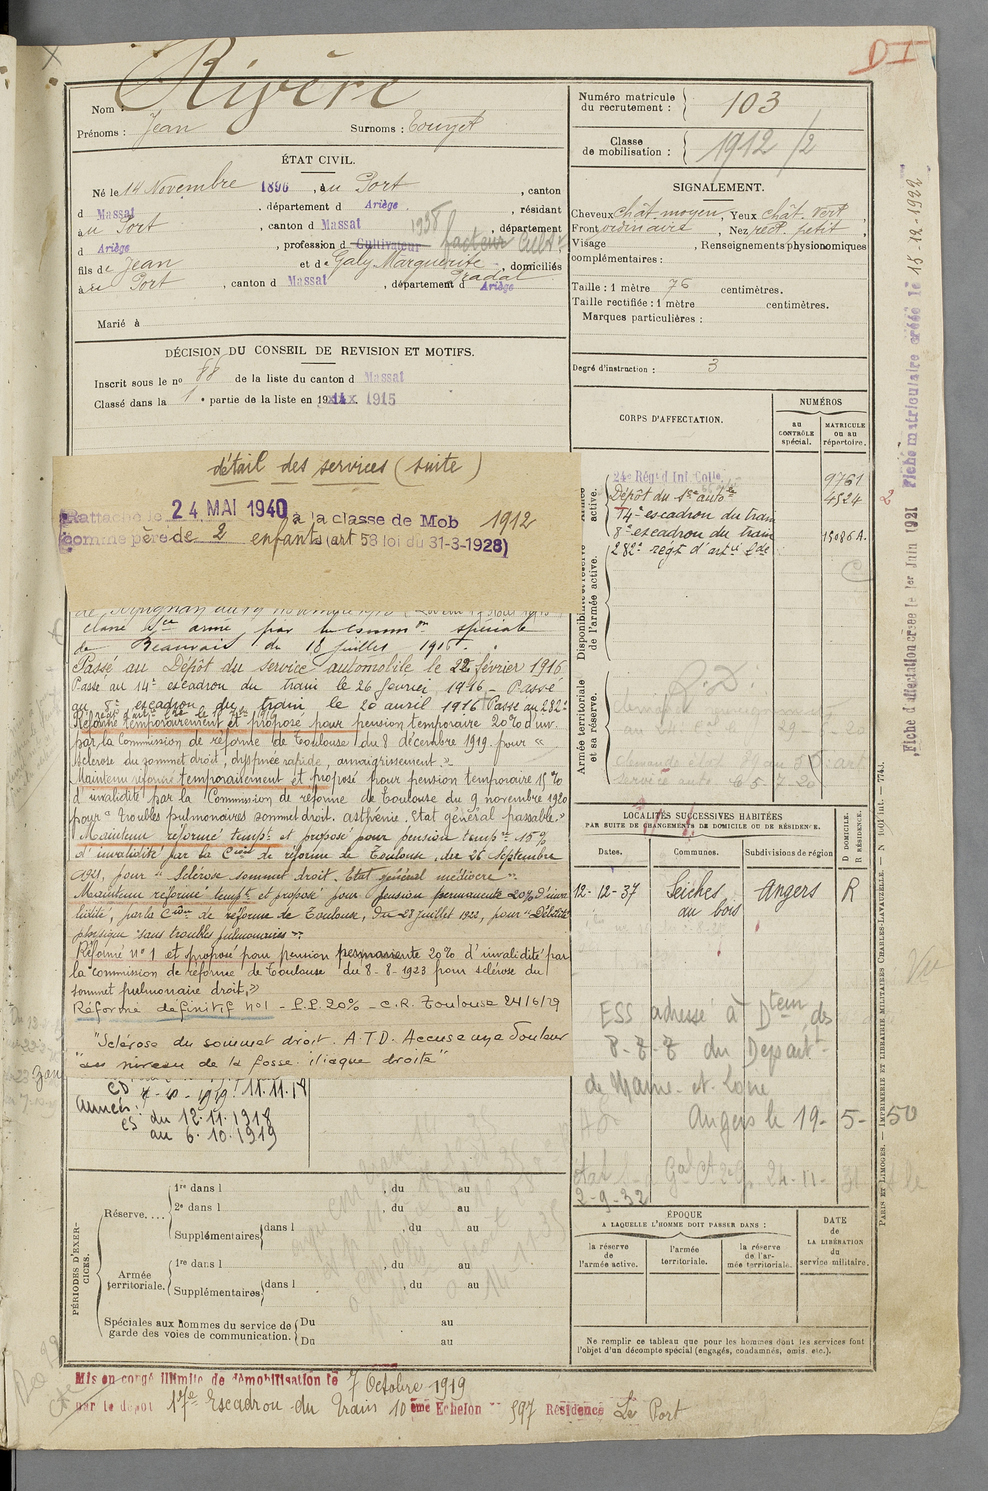 Rivère
DI
Nom :
Prénoms : Jean Surnoms : Touzet
Numéro matricule du recrutement : 103
Classe de mobilisation : 1912/2
ÉTAT CIVIL.
Né le 14 Novembre 1896, au Port, canton
d Massat, département d Ariège, résidant
au Port, canton d Massat, département
1938
d Ariège, profession d Cultivateur facteur Cultr
fils de Jean et de Galy Marguerite, domiciliés
Pradal
au Port, canton d Massat, département d Ariège
Marié à
SIGNALEMENT.
Cheveux chât. moyen, Yeux chât. vert,
Front ordinaire, Nez rect. petit,
Visage , Renseignements physionomiques
complémentaires :
Taille : 1 mètre 76 centimètres.
Taille rectifiée : 1 mètre centimètres.
Marques particulières :
Degré d'instruction : 3
DÉCISION DU CONSEIL DE REVISION ET MOTIFS.
Inscrit sous le no 88 de la liste du canton d Massat
Classé dans la 1e partie de la liste en 1915
CORPS D'AFFECTATION.
NUMÉROS
au CONTRÔLE spécial.
MATRICULE ou au répertoire.
24e Régt d'Inf Colle 9761
Dépôt du 1er auto 4524
14e escadron du train
8e escadron du train 15086 A.
282e régt d'artie Lde
active.
Disponibilité et réserve de l'armée active.
Armée territoriale et sa réserve.
détail des services (suite)
Rattaché le 24 MAI 1940 à la classe de Mob 1912
comme père de 2 enfants (art 58 loi du 31-3-1928)
classé Ser armé, par la common spéciale
de Beauvais du 18 juillet 1916.
Passé au Dépôt du service automobile le 22 février 1916
Passé au 14e escadron du train le 26 février 1916 - Passé
au 8e escadron du train le 20 avril 1916 Passé au 282e
Réformé temporairement et proposé pour pension temporaire 20% d'inv.
par la Commission de réforme de Toulouse du 8 décembre 1919 pour «
sclérose du sommet droit, dyspnée rapide, amaigrissement ».
Maintenu réformé temporairement et proposé pour pension temporaire 15%
d'invalidité par la Commission de réforme de Toulouse du 9 novembre 1920
pour « troubles pulmonaires sommet droit. asthénie. Etat général passable. »
Maintenu réformé tempt et proposé pour pension tempre 15%
d'invalidité par la Cion de réforme de Toulouse, du 26 Septembre
1921, pour « Sclérose sommet droit. Etat général médiocre ».
Maintenu réformé tempt et proposé pour pension permanente 20% d'inva
lidité, par la Cion de réforme de Toulouse, du 28 juillet 1922, pour « Débilité
physique sans troubles pulmonaires ».
Réformé no 1 et proposé pour pension permanente 20% d'invalidité par
la commission de réforme de Toulouse du 8-8-1923 pour sclérose du
sommet pulmonaire droit. »
Réformé définitif no 1 - P.P. 20% - C.R. Toulouse 24/6/29
"Sclérose du sommet droit. A.T.D. Accuse une douleur
"au niveau de la fosse iliaque droite"
CD 11.11.18
Année :
CS du 12.11.1918
au 6.10.1919
LOCALITÉS SUCCESSIVES HABITÉES
PAR SUITE DE CHANGEMENTS DE DOMICILE OU DE RÉSIDENCE.
Dates. Communes. Subdivisions de région D DOMICILE. R RÉSIDENCE.
12-12-37 Seiches au bois Angers R
ESS adressé à Dteur des
P-Z-Z du Départ-
de Maine-et-Loire
Angers le 19-5-50
2-9-32
PÉRIODES D'EXERCICES.
Réserve....
1re dans l , du au
2e dans l , du au
Supplémentaires dans l , du au
Armée territoriale.
1re dans l , du au
Supplémentaires dans l , du au
Spéciales aux hommes du service de garde des voies de communication.
Du au
Du au
ÉPOQUE
A LAQUELLE L'HOMME DOIT PASSER DANS :
la réserve de l'armée active.
l'armée territoriale.
la réserve de l'armée territoriale.
DATE de LA LIBÉRATION du service militaire.
Ne remplir ce tableau que pour les hommes dont les services font
l'objet d'un décompte spécial (engagés, condamnés, omis, etc.).
Mis en congé illimité de démobilisation le 7 Octobre 1919
par le dépot 17e Escadron du Train 10 ème Echelon no 597 Résidence Le Port
Fiche d'affectation créée le 1er Juin 1921 Fiche matriculaire créée le 15-12-1922
PARIS ET LIMOGES. — IMPRIMERIE ET LIBRAIRIE MILITAIRES CHARLES-LAVAUZELLE.
Vu